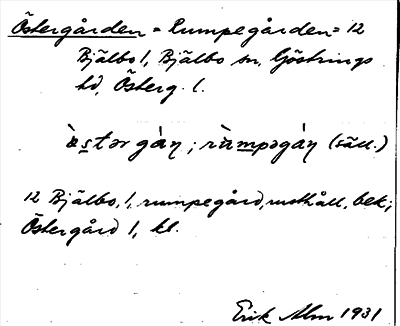 Östergården = Rumpegården = 12
Bjälbo 1, Bjälbo sn, Göstrings
hd, Österg. l.
ὰstər gὰṇ; rὰmpəgὰṇ (säll.)
12 Bjälbo, 1, rumpegård, rusthåll, bek;
Östergård 1, kl.
Erik Alm 1931